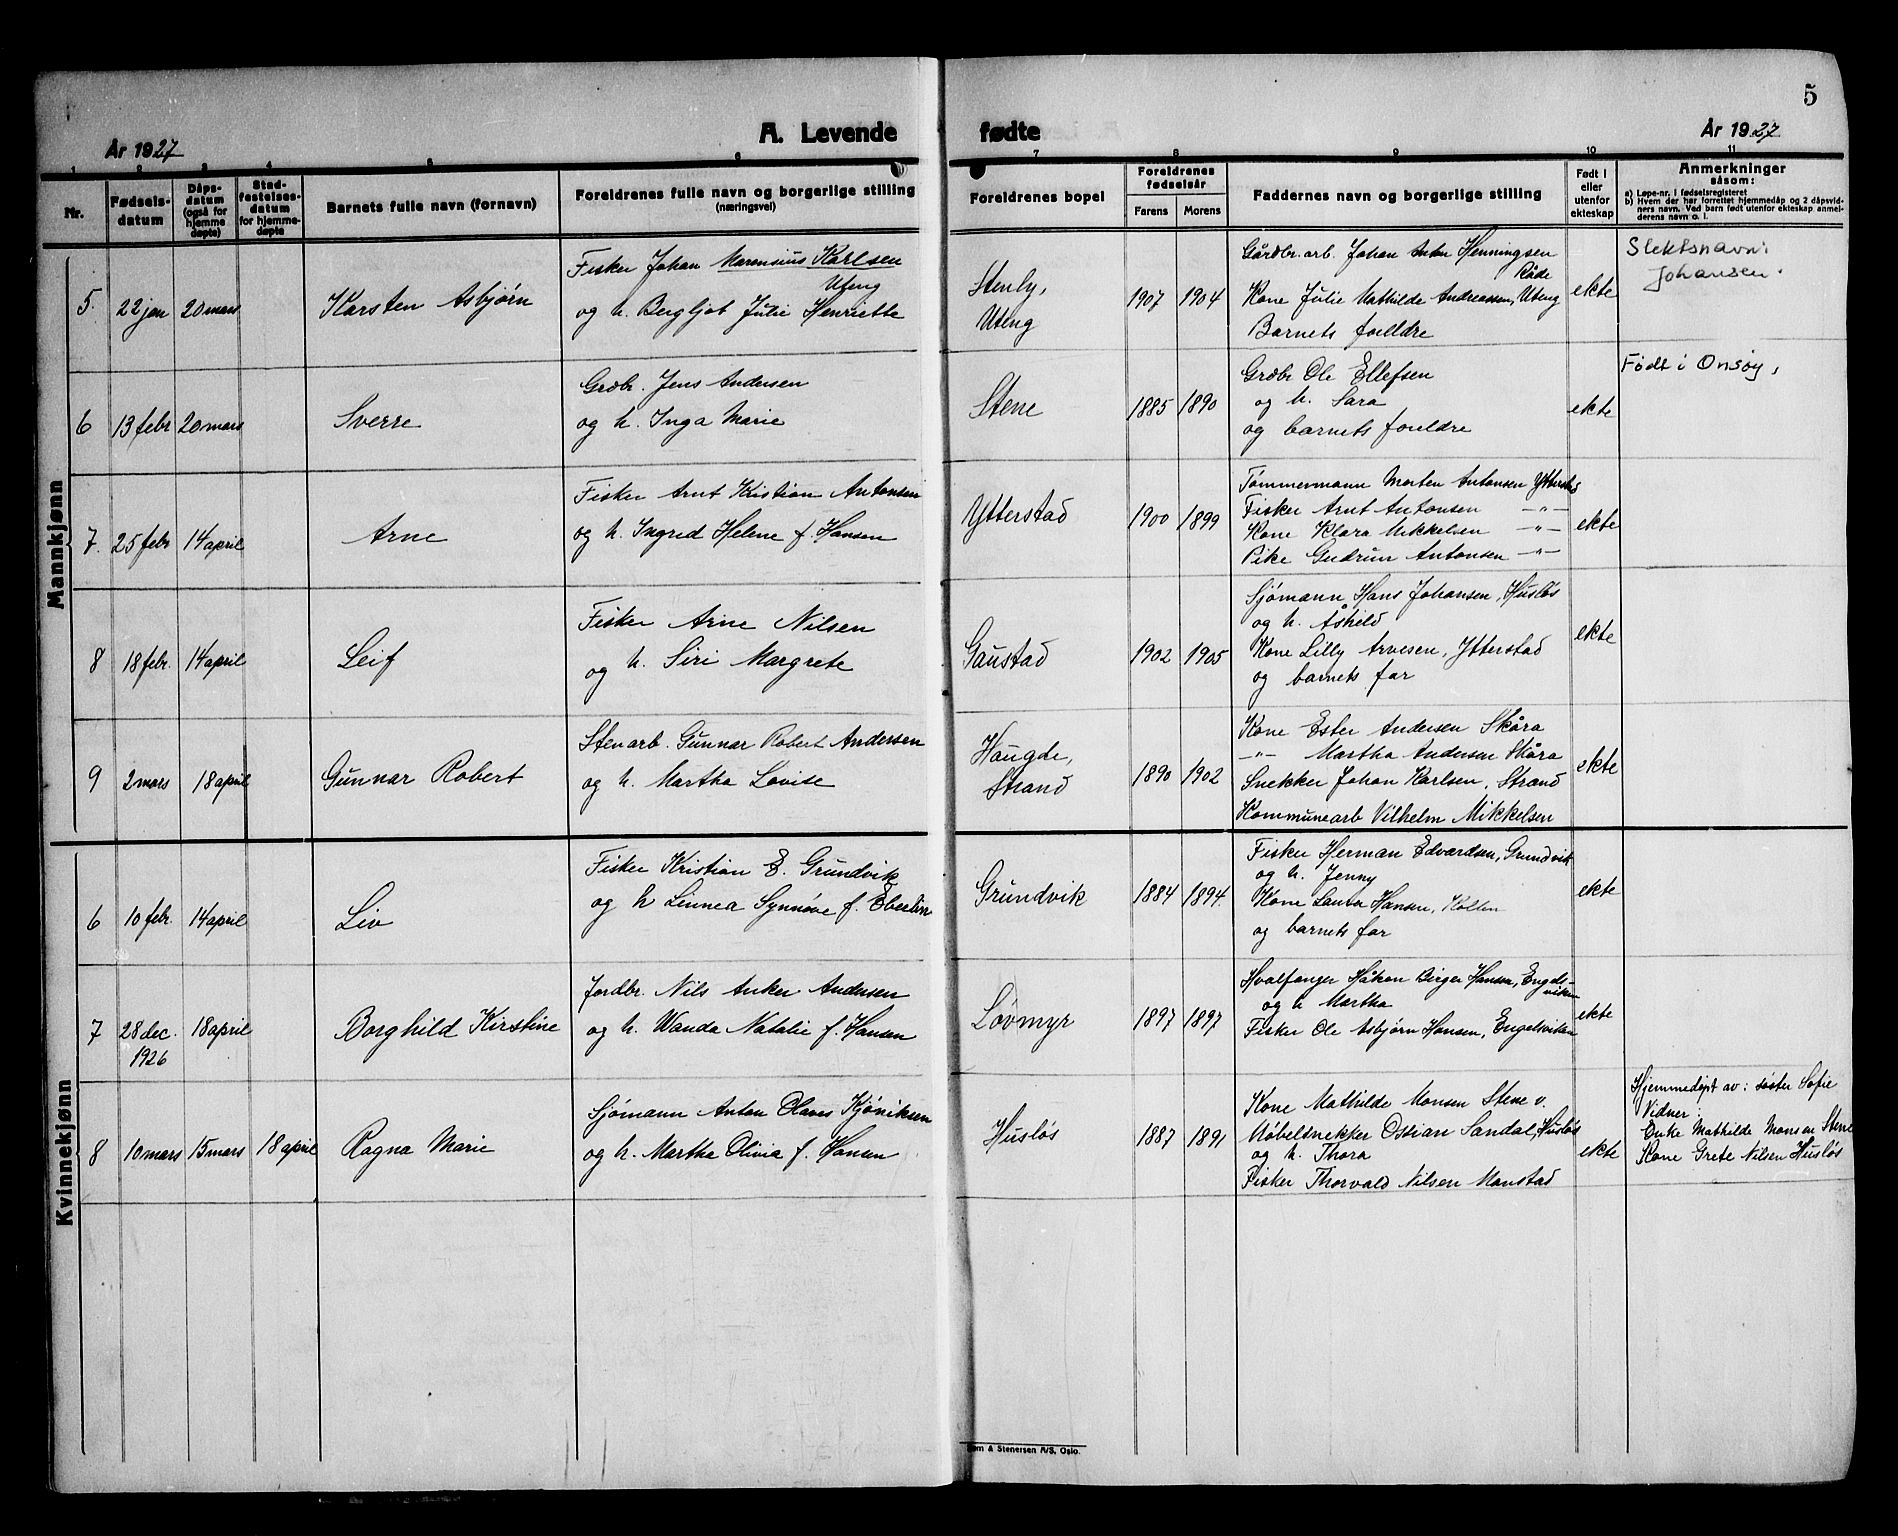 5
År 1927
A. Levende fødte
År 1927
1 2 3 4 5 6 7 8 9 10 11
Nr.
Fødsels-
datum
Dåps-
datum
(også for
hjemme
døpte)
Stad-
festelses-
datum
for hjemme-
døpte
Barnets fulle navn (fornavn)
Foreldrenes fulle navn og borgerlige stilling
(næringsvei)
Foreldrenes bopel
Foreldrenes
fødselsår
Farens
Morens
Faddernes navn og borgerlige stilling
Født i
eller
utenfor
ekteskap
Anmerkninger
såsom:
a) Løpe-nr. i fødselsregisteret
b) Hvem der har forrettet hjemmedåp og 2 dåpsvid-
ners navn. Ved barn født utenfor ekteskap anmel-
derens navn o. l.
Mannkjønn
5. 22 jan 20 mars
Karsten Asbjørn
Fisker Johan Marensius Karlsen
Uteng
og h. Bergljot Julie Henriette
Stenly,
Uteng
1907 1904
Gårdbr.arb. Johan Anton Henningsen
Råde
Kone Julie Mathilde Andreassen, Uteng
Barnets foreldre
ekte
Slektsnavn:
Johansen.
6 13 febr 20 mars
Sverre
Grdbr. Jens Andersen
og h. Inga Marie
Stene
1885 1890
Grdbr Ole Ellefsen
og h. Sara
og barnets foreldre
ekte
Født i Onsøy,
7. 25 febr 14 april
Arne
Fisker Arnt Kristian Antonsen
og h. Ingrid Helene f. Hansen
Ytterstad
1900 1899
Tømmermann Morten Antonsen Ytterstad
Fisker Arnt Antonsen -"-
Kone Klara Mikkelsen -"-
Pike Gudrun Antonsen -"-
ekte
8 18 febr. 14 april
Leif
Fisker Arne Nilsen
og h. Siri Margrete
Gaustad
1902 1905
Sjømann Hans Johansen, Husløs
og h. Åshild
Kone Lilly Arvesen, Ytterstad
og barnets far
ekte
9 2 mars 18 april
Gunnar Robert
Stenarb. Gunnar Robert Andersen
og h. Martha Lovise
Haugde,
Strand
1890 1902
Kone Ester Andersen Skåra
-"- Martha Andersen Skåra
Snekker Johan Karlsen, Strand
Kommunearb Vilhelm Mikkelsen
ekte
Kvinnekjønn
6 10 febr. 14 april
Liv
Fisker Kristian E. Grundvik
og h Linnea Synnøve f. Eberlin
Grundvik
1884 1894.
Fisker Herman Edvardsen, Grundvik
og h. Jenny
Kone Laura Hansen, Kollen
og barnets far
ekte
7 28 dec. 18 april
1926
Borghild Kirstine
Jordbr. Nils Anker Andersen
og h. Wanda Natalie f. Hansen
Løvmyr
1897 1897
Hvalfanger Håkon Birger Hansen, Engel-
viken
og h Martha
Fisker Ole Asbjørn Hansen, Engelviken
ekte
8 10 mars 15 mars 18 april
Ragna Marie
Sjømann Anton Olaves Kjøniksen
og h. Martha Olivia f. Hansen
Husløs
1887 1891
Kone Mathilde Monsen Stene v.
Møbelsnekker Ossian Sandal, Husløs
og h. Thora
Fisker Thorvald Nilsen Monstad
ekte
Hjemmedøpt av: søster Sofie
Vidner:
Enke Mathilde Monsen Stene
Kone Grete Nilsen Husløs
& Stenersen A/S, Oslo.